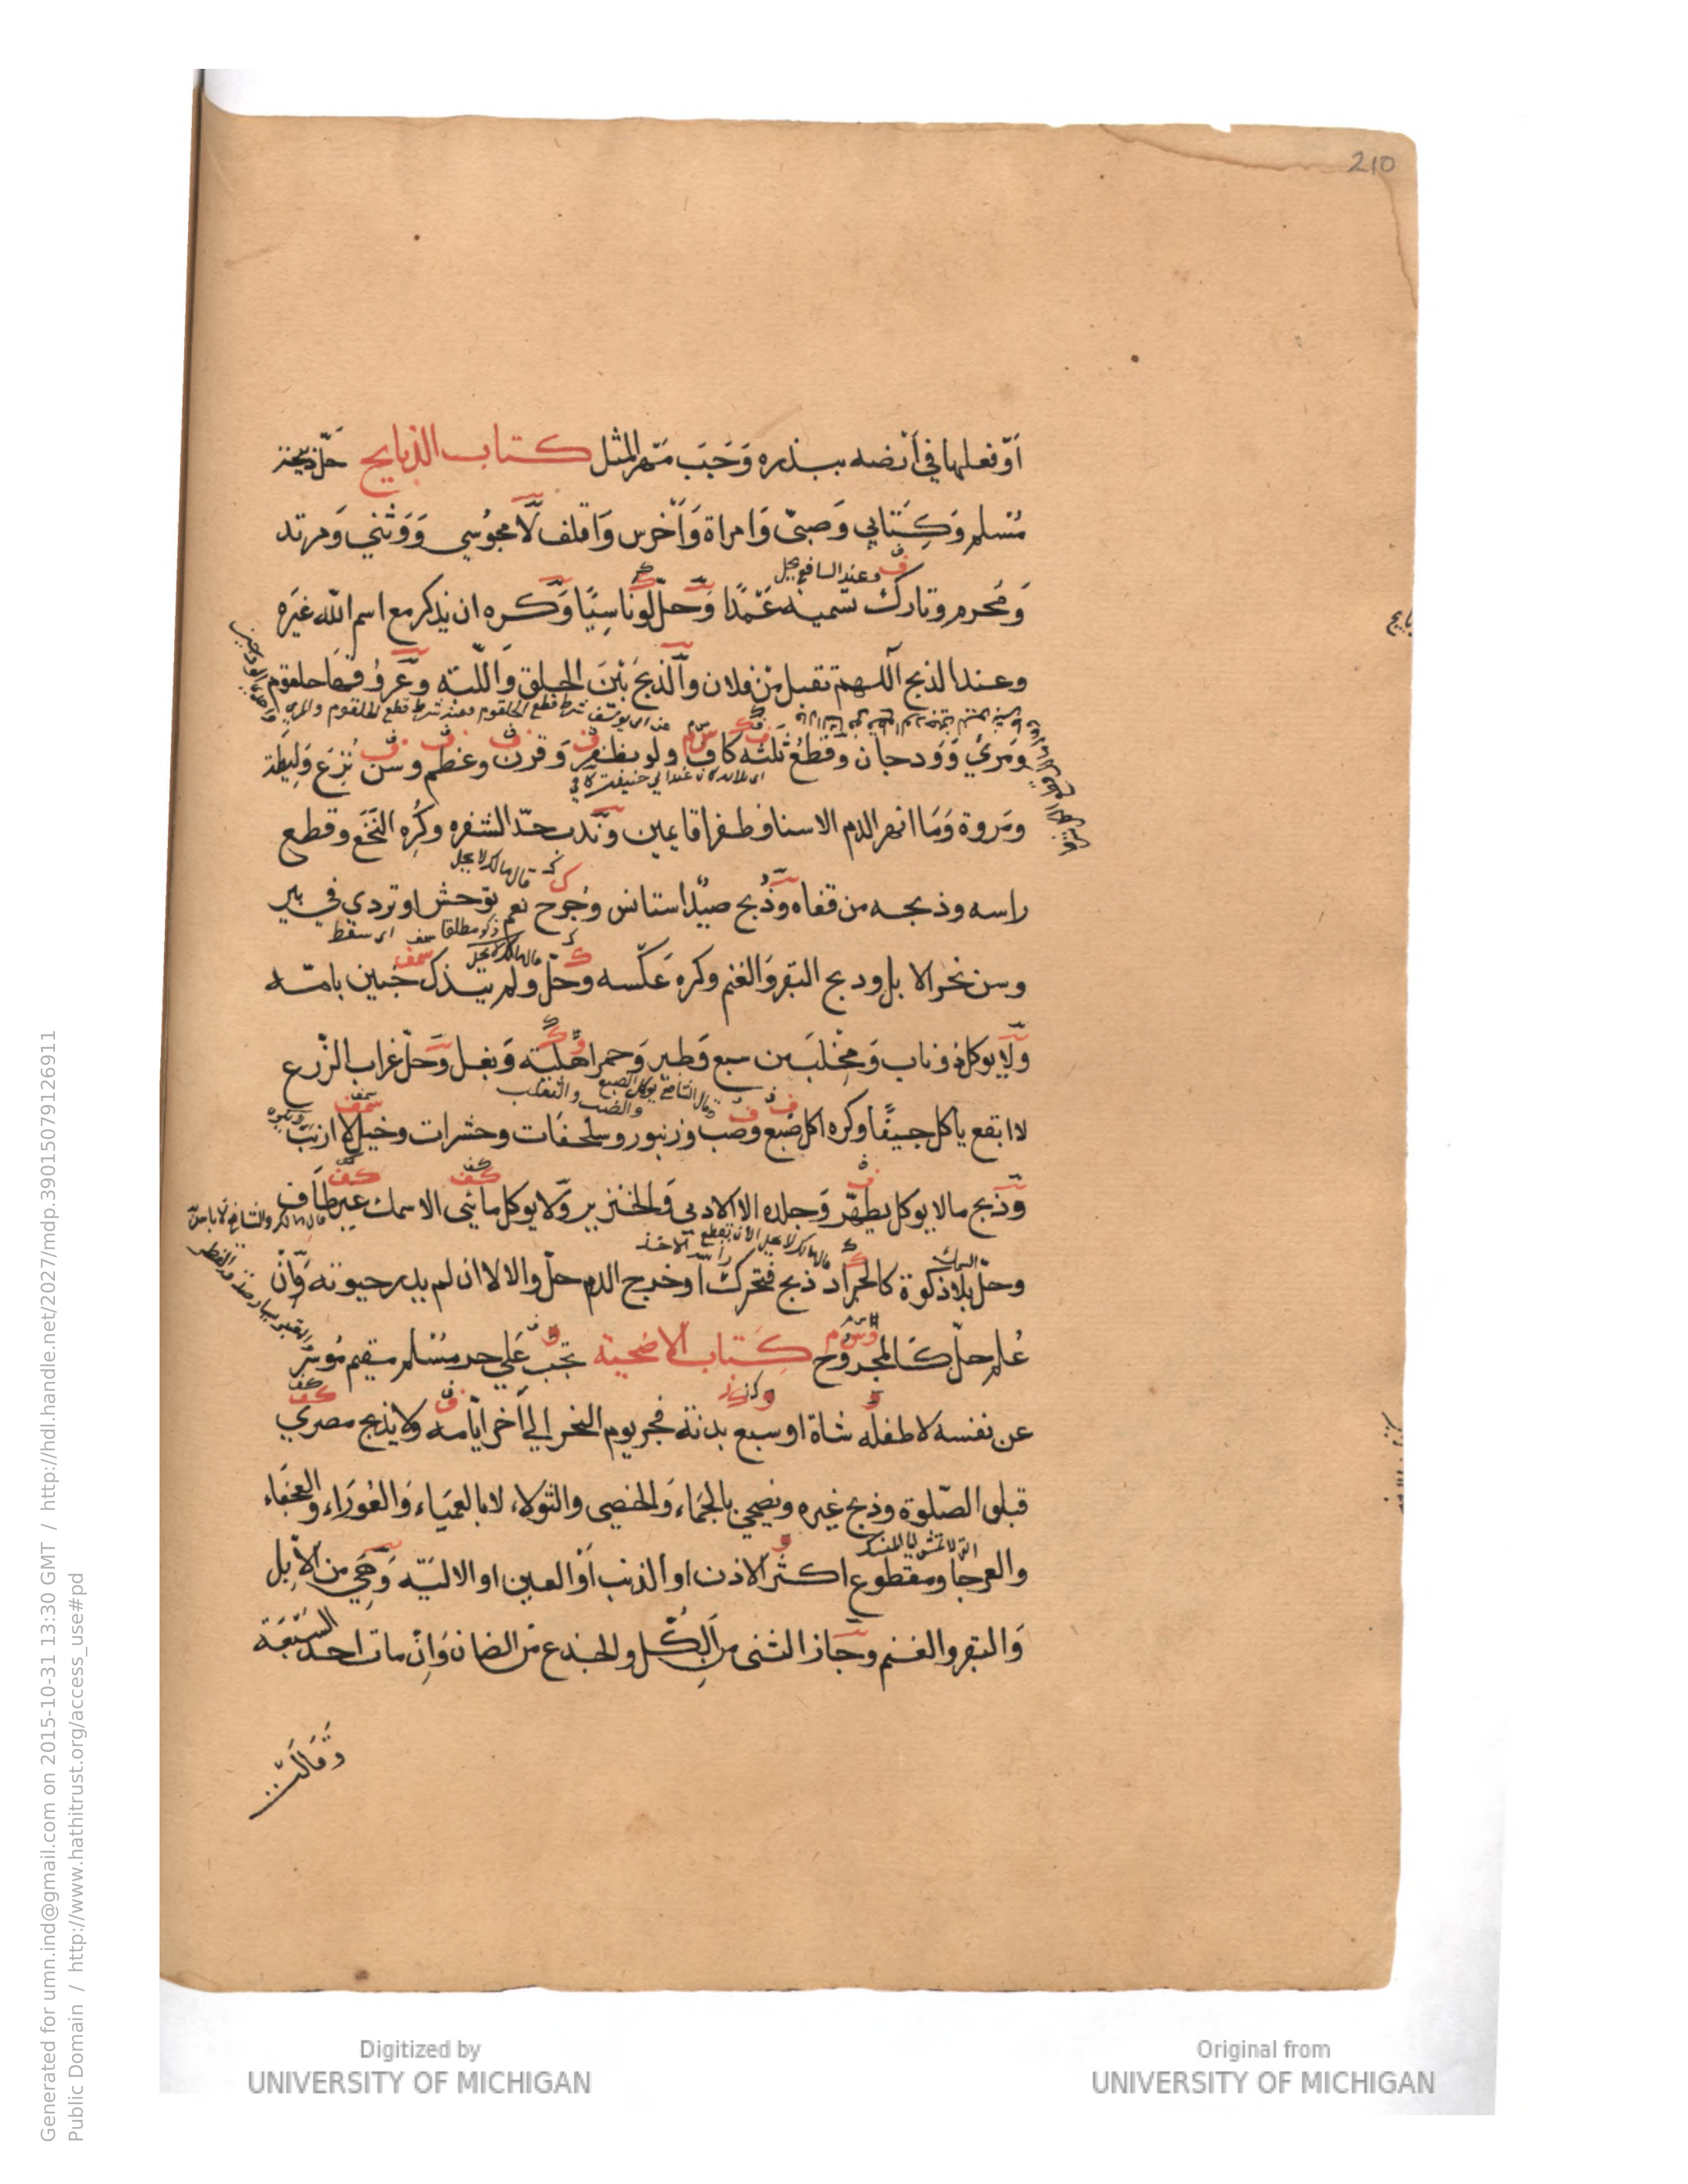 210
اَوْ فعلها في اَرْضه ببذره وَحَبَ مَهر المثل كتاب الذبايح حَلّ ذبيحة
مُسْلم وَكِتَابي وَصبيّ وَامراة وَاَخْرس وَاقلف لَا مجوُسي وَوَثْني وَمرتد
وعند الشافعي يحل
وَمُحرم وتارك تسمية عَمْدًا وَحلّ لو ناسِيًا وَكره ان يذكر مع اسم الله غيَره
وعند الذبح اللهم تقبل مِنْ فلان وَالذبح بَيْنَ الحلق وَاللبّه وَعُرُوقهَا حلقوم
وَمَرئ وَوَدجان وَقطعُ ثَلثه كاف ولو بظفر وَقرن وعظم وسن نُزع وَليطة
ومَروة وَمَا انهر الدم الا سنا وظفرا قايمين وَندب حدّ الشفره وكُره النَخَع وقطع
قال مالك لا يحل
راسه وذبحه من قفاه وَذُبح صيدٌ استانس وجُرح نعم توحش او تردي في بير
اى سقط
قال مالك لا يحل
وسن نحر الابل وذبح البقر وَالغنم وكره عَكسه وحلّ ولم يتذك جنين بامّه
وَلا يوكل ذو ناب وَمِخْلب من سبع وَطير وَحمر اهليّة وَبغل وَحلّ غراب الزّرع
قال الشافعي يوكل الضبع والضب والثعلب
لا ابقع ياكل جيفًا وكره اكل ضبع وضب وزنبور وسلحفات وحشرات وخيل لا ارنب
وَذبح ما لا يوكل يطهّر وَجلده الا الادمى وَالخنزير وَلا يوكل مائى الا سمك غير طَاف
وحلّ بلا ذكوة كالجراد ذبح فتحركت اَو خرج الدم حلّ والا لا ان لم يدر حيوته وَانْ
عُلم حلّ كالمجروح كتاب الاضحية تجب عَلي حر مسْلم مقيم مُوسر
عن نفسه لا طفله شاة او سبع بدنة فجر يوم النحر الي آخر ايّامه ولا يذبح مصري
قبل الصّلوة وذبح غيره ويضحي بالجَماء وَالخصى والثولاء لا بالعمَياء وَالعُورَاء والعجفاء
التي لا تمشي الى المنسك
والعرجا ومقطوع اكثر الاذن او الذنب اَوْ العين او الاليَة وَهي من الابل
وَالبقر والغنم وجَاز الثنى من الكل والجذع من الضان وَاِنْ مات احد السبعَة
وَقَالَتْ
Digitized by
UNIVERSITY OF MICHIGAN
Original from
UNIVERSITY OF MICHIGAN
Generated for umn.ind@gmail.com on 2015-10-31 13:30 GMT / http://hdl.handle.net/2027/mdp.39015079126911
Public Domain / http://www.hathitrust.org/access_use#pd